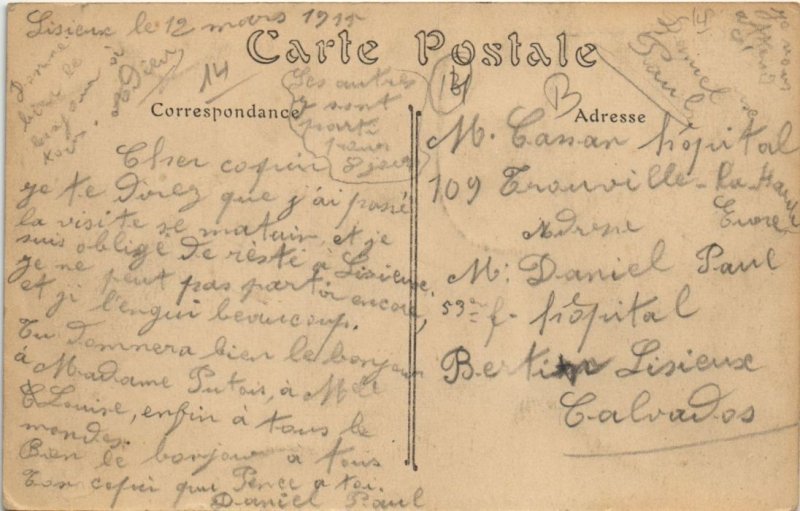 Lisieux le 12 mars 1915
Carte Postale
Correspondance
Adresse
14
Donne
bien le
bonjour
Les autres
sont
parti
pour
8 jour
14
B
14
Daniel
Paul
Cher copin
je te direz que j'ai passé
la visite se matuin, et je
suis obligé de résté à Lisieux,
je ne peut pas partir encore,
et ji l'engui beaucoup.
Tu donnera bien le bonjour
à Madame Putois, à Mlle
Louise, enfin à tous le
mondes.
Bien le bonjour a tous
Ton copin qui Pence a toi.
Daniel Paul
M. Cassan hôpital
109 Trouville-La-Haule
Eure
Adresse
M: Daniel Paul
53 hôpital
Bertin Lisieux
Calvados